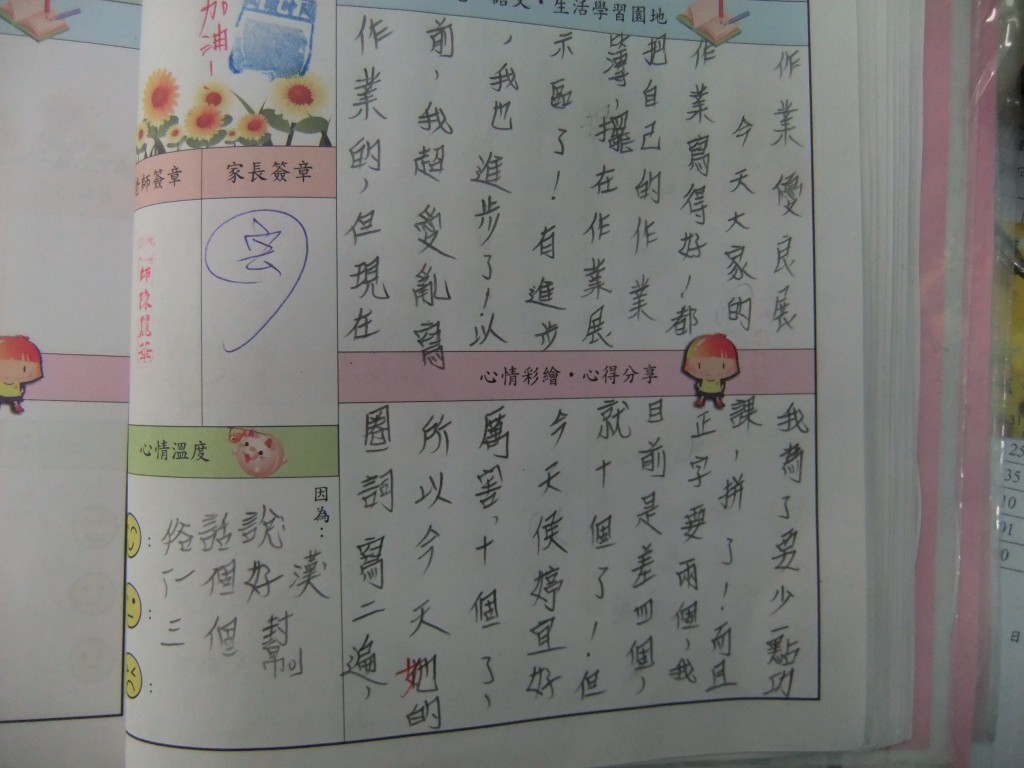 語文・生活學習園地
作業優良展
今天大家的
作業寫得好！都
把自己的作業
簿，擺在作業展
示區了！有進步
，我也進步了！以
前，我超愛亂寫
作業的，但現在
心情彩繪・心得分享
我為了要少一點功
課，拼了！而且
正字要兩個，我
目前是差四個，
就十個了！但
今天侯婷宜好
厲害，十個了，
所以今天她的
圈詞寫二遍，
加油！
師簽章
家長簽章
宏
師陳
心情溫度
因為：
俗話說
一個好漢
三個幫